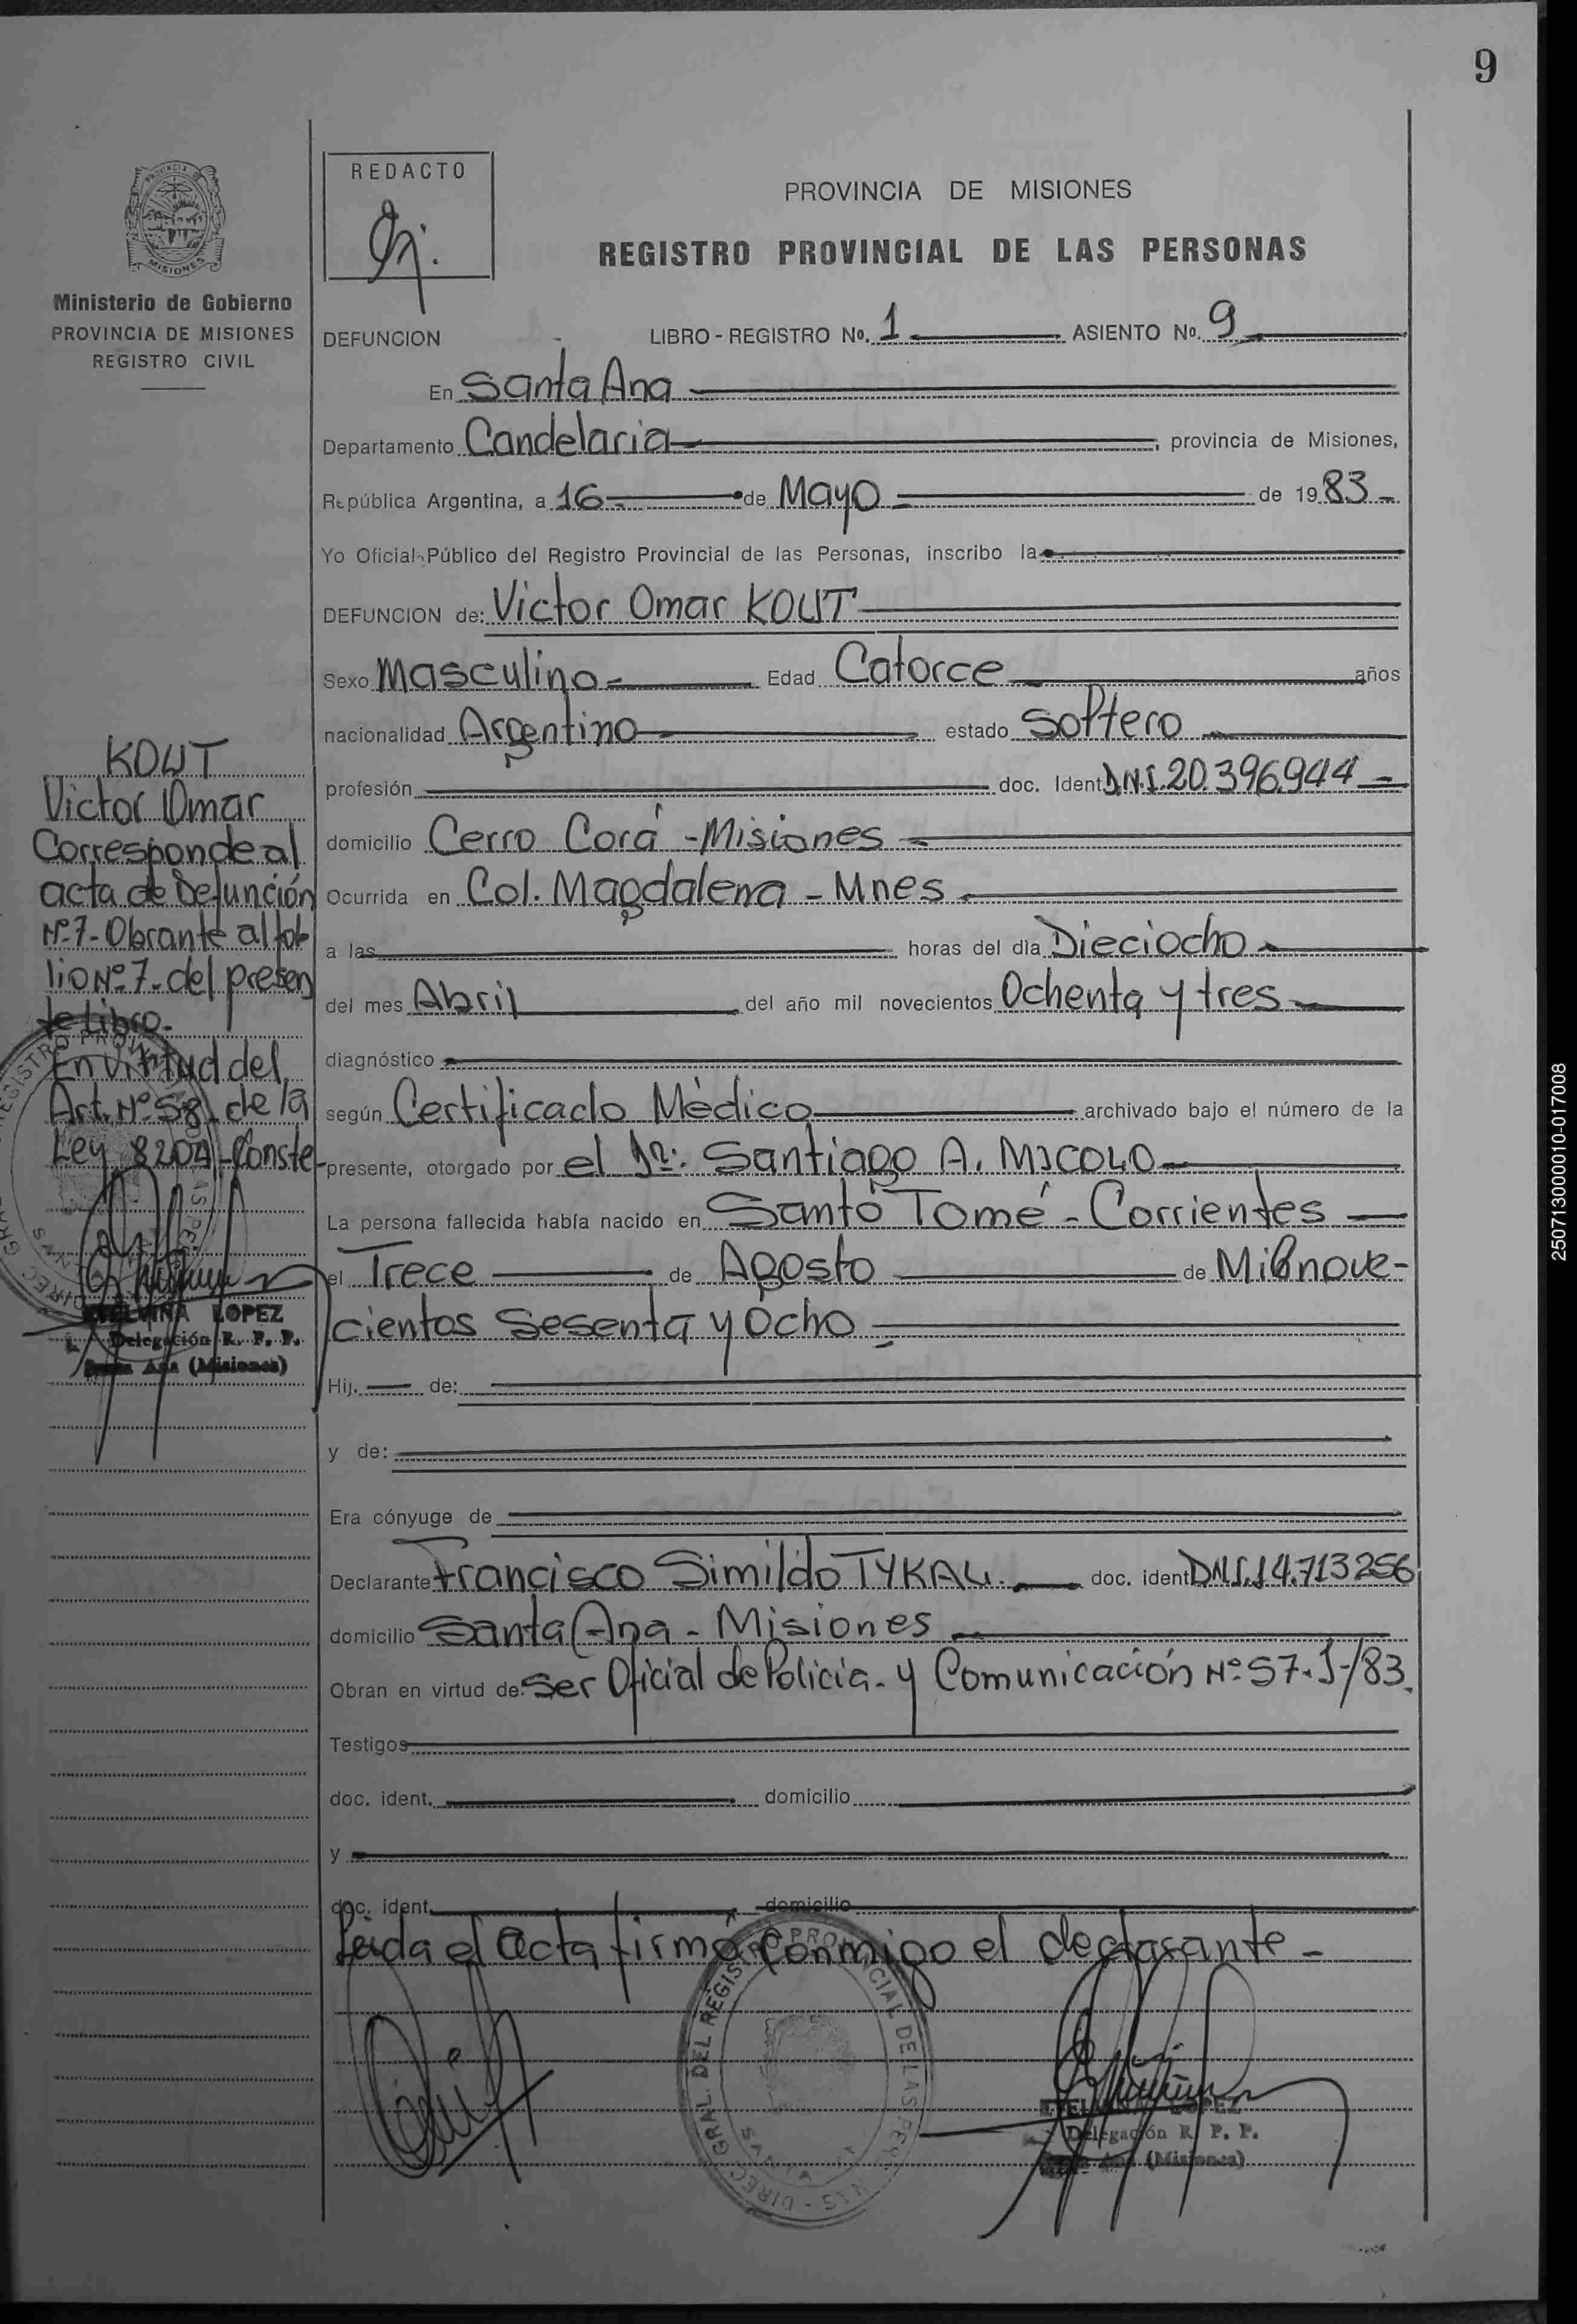 9
REDACTO
PROVINCIA DE MISIONES
REGISTRO PROVINCIAL DE LAS PERSONAS
MISIONES
Ministerio de Gobierno
PROVINCIA DE MISIONES
REGISTRO CIVIL
DEFUNCION LIBRO - REGISTRO Nº. 1 ASIENTO Nº. 9
En Santa Ana
Departamento Candelaria, provincia de Misiones,
República Argentina, a 16 de Mayo de 1983-
Yo Oficial Público del Registro Provincial de las Personas, inscribo la
DEFUNCION de: Victor Omar KOUT
Sexo Masculino Edad Catorce años
nacionalidad Argentino estado Soltero
profesión doc. Ident. D.N.I. 20.396.944
domicilio Cerro Corá - Misiones
Ocurrida en Col. Magdalena - Mnes
a las horas del día Dieciocho
del mes Abril del año mil novecientos Ochenta y tres
diagnóstico
según Certificado Mèdico archivado bajo el número de la
presente, otorgado por el Dr. Santiago A. MICOLO
La persona fallecida había nacido en Santo Tomé - Corrientes
el Trece de Agosto de Milnove-
cientos Sesenta y Ocho
Hij. de:
y de:
Era cónyuge de
Declarante Francisco Simildo TYKAL doc. ident D.N.I. 14.713256
domicilio Santa Ana - Misiones
Obran en virtud de: Ser Oficial de Policia. y Comunicación Nº 57-J-/83.
Testigos
doc. ident. domicilio
y
doc. ident. domicilio
Leida el acta firma conmigo el declarante -
KOUT
Victor Omar
Corresponde al
acta de Defunción
Nº 7- Obrante al fo-
lio Nº 7. del presen
te Libro.
En virtud del
Art. Nº 58 de la
Ley 8204 - Conste-
LOPEZ
Delegación R. P. P.
Ana (Misiones)
DIREC. GRAL. DEL REGISTRO PROVINCIAL DE LAS PERS
LOPEZ
Delegación R. P. P.
Ana (Misiones)
250713000010-017008